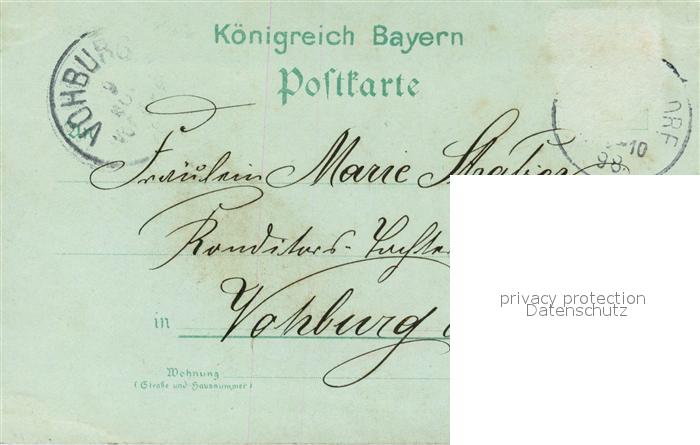 Königreich Bayern
Postkarte
VOHBURG
ORF
10
98
Fräulein Marie
Konditors-Tochter
in Vohburg
Wohnung
(Straße und Hausnummer)
privacy protection
Datenschutz